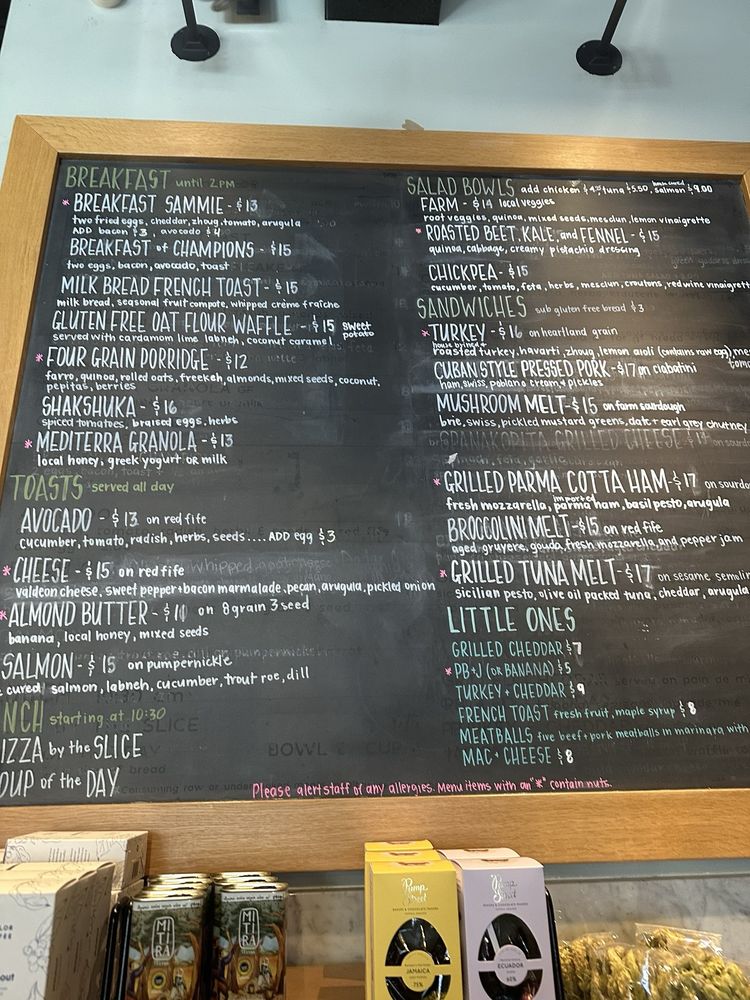 BREAKFAST until 2PM
* BREAKFAST SAMMIE - $13
two fried eggs, cheddar, zhoug, tomato, arugula
ADD bacon $3, avocado $4
BREAKFAST of CHAMPIONS - $15
two eggs, bacon, avocado, toast
MILK BREAD FRENCH TOAST - $15
milk bread, seasonal fruit compote, whipped crème fraîche
GLUTEN FREE OAT FLOUR WAFFLE - $15 sweet potato
served with cardamom lime labneh, coconut caramel
* FOUR GRAIN PORRIDGE - $12
farro, quinoa, rolled oats, freekeh, almonds, mixed seeds, coconut,
pepitas, berries
SHAKSHUKA - $16
spiced tomatoes, braised eggs, herbs
* MEDITERRA GRANOLA - $13
local honey, greek yogurt OR milk
TOASTS served all day
AVOCADO - $13 on red fife
cucumber, tomato, radish, herbs, seeds.... ADD egg $3
* CHEESE - $15 on red fife
valdeon cheese, sweet pepper + bacon marmalade, pecan, arugula, pickled onion
* ALMOND BUTTER - $11 on 8 grain 3 seed
banana, local honey, mixed seeds
SALMON - $15 on pumpernickle
cured salmon, labneh, cucumber, trout roe, dill
NCH starting at 10:30
IZZA by the SLICE
OUP of the DAY
SALAD BOWLS add chicken $4.50 tuna $5.50, salmon $9.00
FARM - $14 local veggies
root veggies, quinoa, mixed seeds, mesclun, lemon vinaigrette
* ROASTED BEET, KALE, and FENNEL - $15
quinoa, cabbage, creamy pistachio dressing
CHICKPEA - $15
cucumber, tomato, feta, herbs, mesclun, croutons, red wine vinaigrett
SANDWICHES sub gluten free bread $3
* TURKEY - $16 on heartland grain
house brined
roasted turkey, havarti, zhoug, lemon aioli (contains raw egg), mes
CUBAN STYLE PRESSED PORK - $17 on ciabatini
ham, swiss, poblano cream, + pickles
MUSHROOM MELT - $15 on farm sourdough
brie, swiss, pickled mustard greens, date + earl grey chutney
SPANAKOPITA GRILLED CHEESE
* GRILLED PARMA COTTA HAM - $17 on sourdo
fresh mozzarella, imported parma ham, basil pesto, arugula
BROCCOLINI MELT - $15 on red fife
aged gruyere, gouda, fresh mozzarella and pepper jam
* GRILLED TUNA MELT - $17 on sesame semolin
Sicilian pesto, olive oil packed tuna, cheddar, arugula
LITTLE ONES
GRILLED CHEDDAR $7
* PB+J (OR BANANA) $5
TURKEY + CHEDDAR $9
FRENCH TOAST fresh fruit, maple syrup $8
MEATBALLS five beef + pork meatballs in marinara with
MAC + CHEESE $8
Please alert staff of any allergies. Menu items with an "*" contain nuts.
MITIRA
Pump Street
JAMAICA
75%
Pump Street
ECUADOR
60%